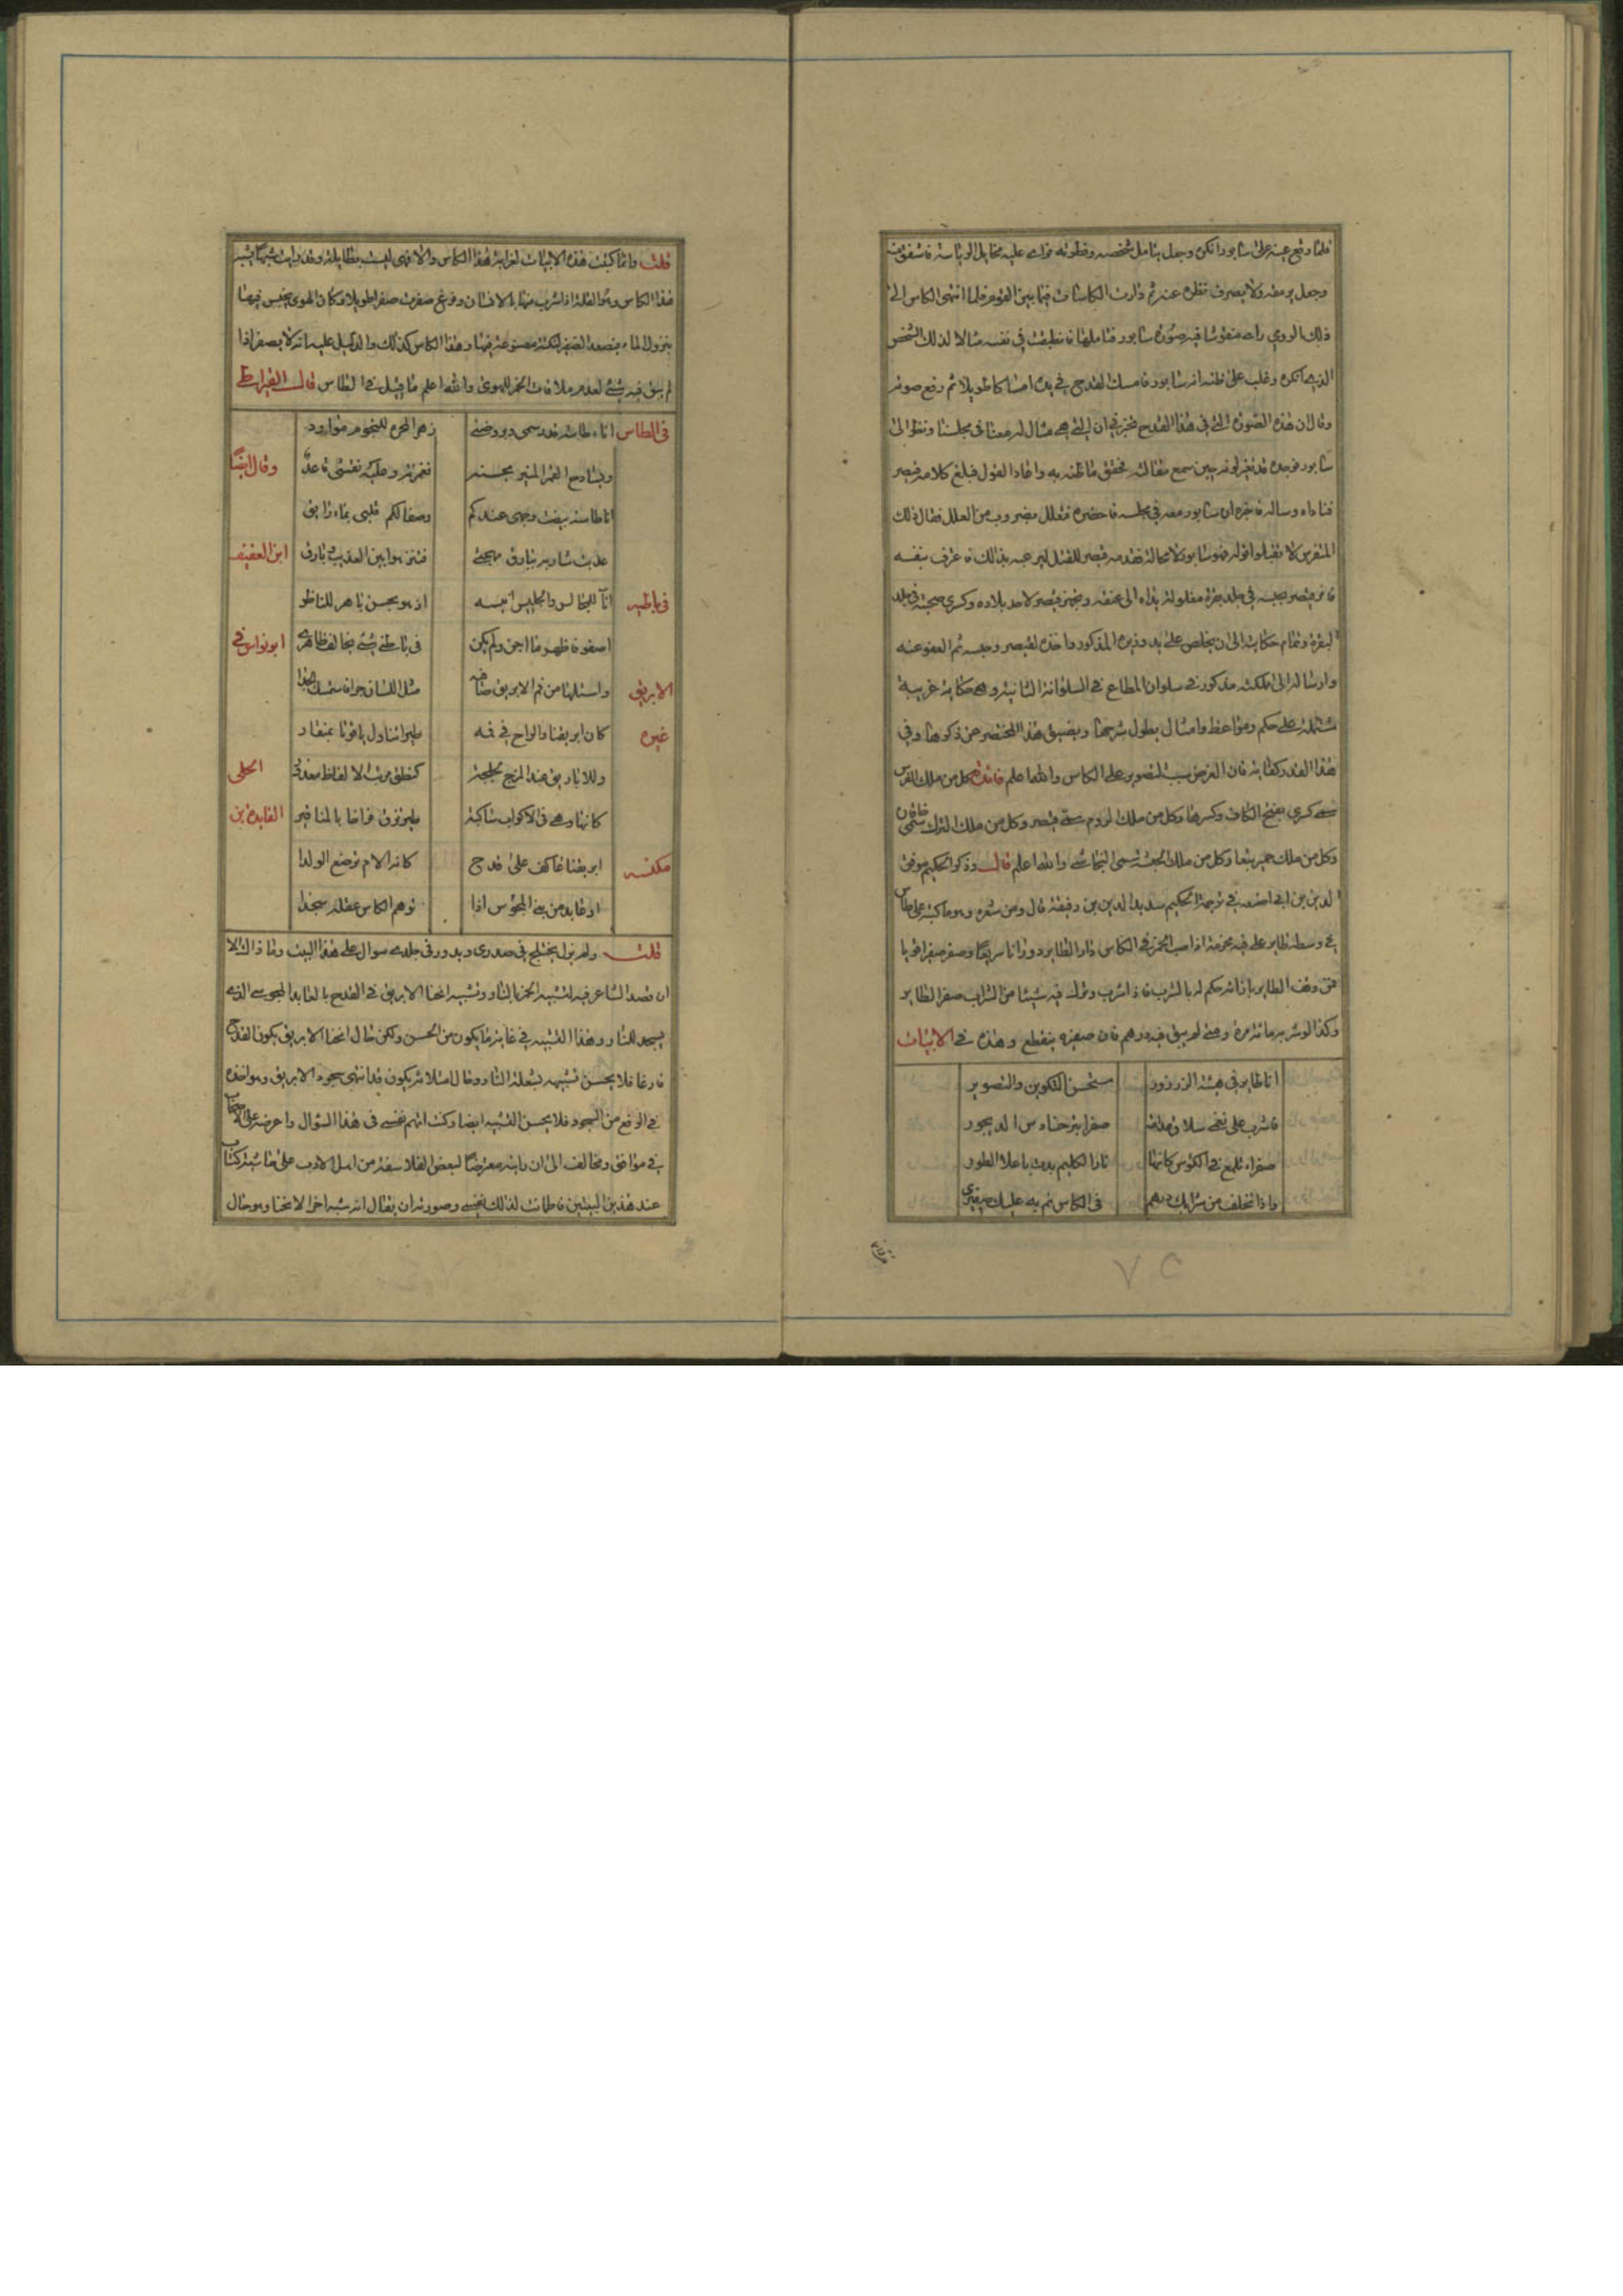 فلما وقع عينه على سابور انكره وجعل يتامل شخصه وفطوته فراى عليه مخايل الرياسة فاشفق منه
وجعل يرمقه ولا يصرف نظره عنه ثم دارت الكاسات فيما بين القوم فلما انتهى الكاس الى
ذلك الرومي راه منقوشا فيه صورة سابور فتاملها فانطبقت في نفسه مثالا لذلك الشخص
الذي انكره وغلب على ظنه انه سابور فامسك القدح في يده امساكا طويلا ثم رفع صوته
وقال ان هذه الصورة التي في هذا القدح تخبرني ان الذي هي مثال له معنا في مجلسنا ونظر الى
سابور فوجده قد تغير لونه حين سمع مقالته فحقق ما ظنه به واعاد القول فبلغ كلامه قيصر
فناداه وساله فاخبره ان سابور معه في مجلسه فاحضره فتعلل بضروب من العلل فقال ذلك
المتفرس لا تقبلوا قوله فهو سابور لا محالة فقدمه قيصر للقتل ليرعبه بذلك فاعترف بنفسه
فامر قيصر بحبسه في جلد بقرة مغلولة يداه الى عنقه وتجهز قيصر لاخذ بلاده وكسرى صحبته في جلد
البقرة وتمام حكايته الى ان يخلص على يد وزيره المذكور واخذه لقيصر وحبسه ثم العفو عنه
وارساله الى مملكته مذكور في سلوان المطاع في السلوانة الثانية وهي حكاية غريبة
مشتملة على حكم ومواعظ وامثال يطول شرحها ويضيق هذا المختصر عن ذكرها وفي
هذا القدر كفاية فان الغرض سبب التصوير على الكاس والله اعلم فائدة كل من ملك الفرس
سمي كسرى بفتح الكاف وكسرها وكل من ملك الروم سمي قيصر وكل من ملك الترك سمي خاقان
وكل من ملك حمير تبعا وكل من ملك الحبشة تسمى النجاشي والله اعلم قال وذكر الحكيم موفق
الدين بن ابي اصيبعه في ترجمة الحكيم سديد الدين بن رقيقة قال ومن شعره وهو ما كتبه على كاس
في وسطه طاير على قبة مخرمة اذا صب الخمر في الكاس دار الطاير دورانا سريعا وصفر صفيرا قويا
فمن وقف الطاير بازائه حكم له بالشرب فاذا شرب وترك فيه شيئا من الشراب صفر الطاير
وكذا لو شربه مائة مرة ومتى لم يبق فيه درهم فان صفيره ينقطع وهذه هي الابيات
انا طاير في هيئة الزرزور مستحسن التكوين والتصوير
فاشرب على نغمي سلاف مدامة صفراء تنير حنادس الديجور
صفراء تلمع في الكؤس كانها نار الكليم بدت باعلا الطور
واذا تخلف من شرابك درهم في الكاس نم به عليك صفيري
٧٥
قلت وانما كتبت هذه الابيات لغرابة هذا الكاس والا فهي ليست بطايلة وقد رايت شيئا يشبه
هذا الكاس وهو القلة اذا شرب منها الانسان وفرغ صفرت صفيرا طويلا وكان الهوى يحتبس فيها
بنزول الماء فيصعد الصفير لنكتة مصنوعة فيها وهذا الكاس كذلك والدليل عليه انه لا يصفر اذا
لم يبق فيه شيء لعدم ملاقات الخمر للهوى والله اعلم ما قيل في الطاس قال القيراطي
في الطاس اناء طاسة قد سمى دوروضتي زهر المجرة للنجوم موارد
ويشادح القمر المنير بحسنه وقال ايضا
انا طاسة بيضت وجهي عندكم وصفا لكم قلبي بماء رايق
عذبت شاربه ببارق مهجتي فتنزهوا بين العذيب وبارق ابن العفيف
في باطية انا للمجالس والجليس انيسه ازهو بحسن باهر للناظر
اصفو فاظهر ما اجن ولم يكن في باطني شيء يخالف ظاهري ابو نواس في
الابريق مثل اللسان
غيره كان ابريقنا والراح في فمه طير تناول ياقوتا بمنقار
وللاباريق عند المزج لجلجة كنطق مرتبك الالفاظ الحلى
كانها وهي في الاكواب ساكبة طير تزق فراخا بالمناقير القايد بن
مكنسه ابريقنا عاكف على قدح كانه الام ترضع الولدا
او عابد من بني المجوس اذا توهم الكاس شعلة سجدا
قلت ولم يزل يختلج في صدري ويدور في خلدي سوال على هذا البيت وما ذاك الا
ان قصد الشاعر فيه لتشبيه الخمر بالنار وتشبيه انحنا الابريق في القدح بالعابد المجوسي الذي
يسجد للنار وهذا التشبيه في غاية ما يكون من الحسن ولكن حال انحنا الابريق يكون القدح
فارغا فلا يحسن تشبيهه بشعلة النار وحال امتلائه يكون قد انتهى سجود الابريق وهو اخذه
في الرفع من السجود فلا يحسن التشبيه ايضا وكنت اتهم نفسي في هذا السؤال واعرضه على الاصحاب
بين موافق ومخالف الى ان رايته معترضا لبعض الفلاسفة من اهل الادب على حاشية كتاب
عند هذين البيتين فاطمانت لذلك نفسي وصورته ان يقال انه شبه اخر الانحنا وهو حال